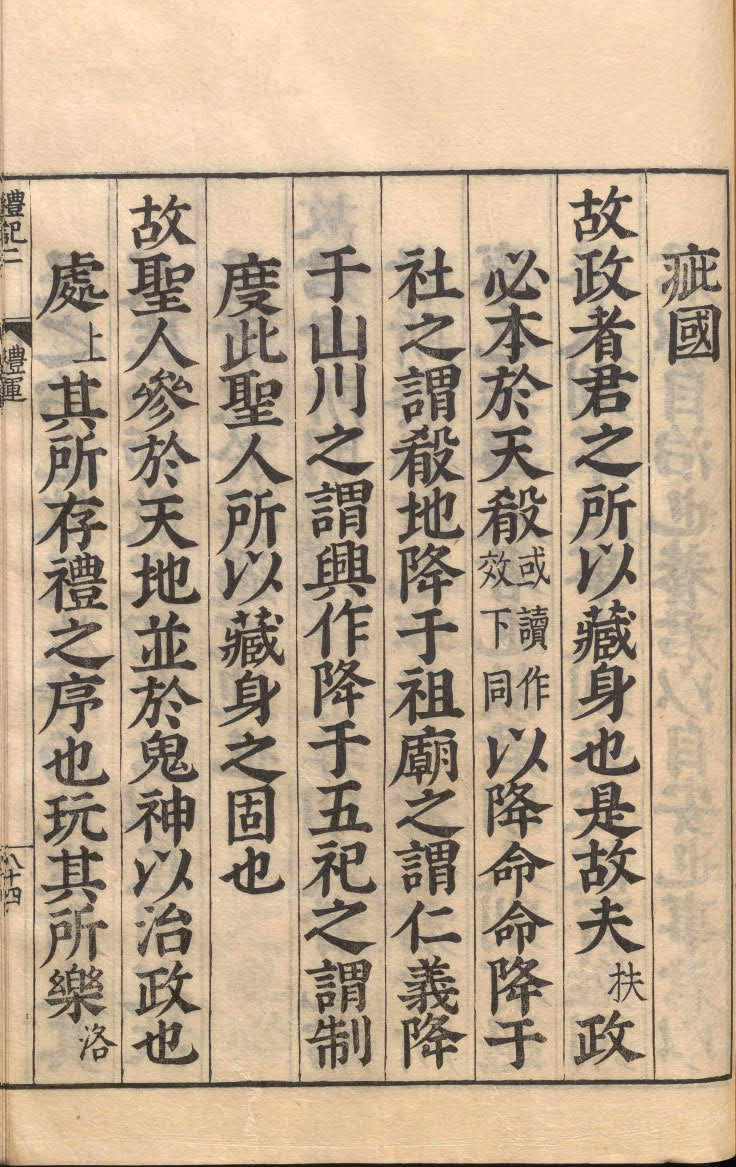 疵國
故政者君之所以藏身也是故夫扶政
必本於天殽或讀作效下同以降命命降于
社之謂殽地降于祖廟之謂仁義降
于山川之謂興作降于五祀之謂制
度此聖人所以藏身之固也
故聖人參於天地並於鬼神以治政也
處上其所存禮之序也玩其所樂洛
禮記二 禮運 八十四